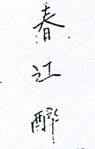 春江醉